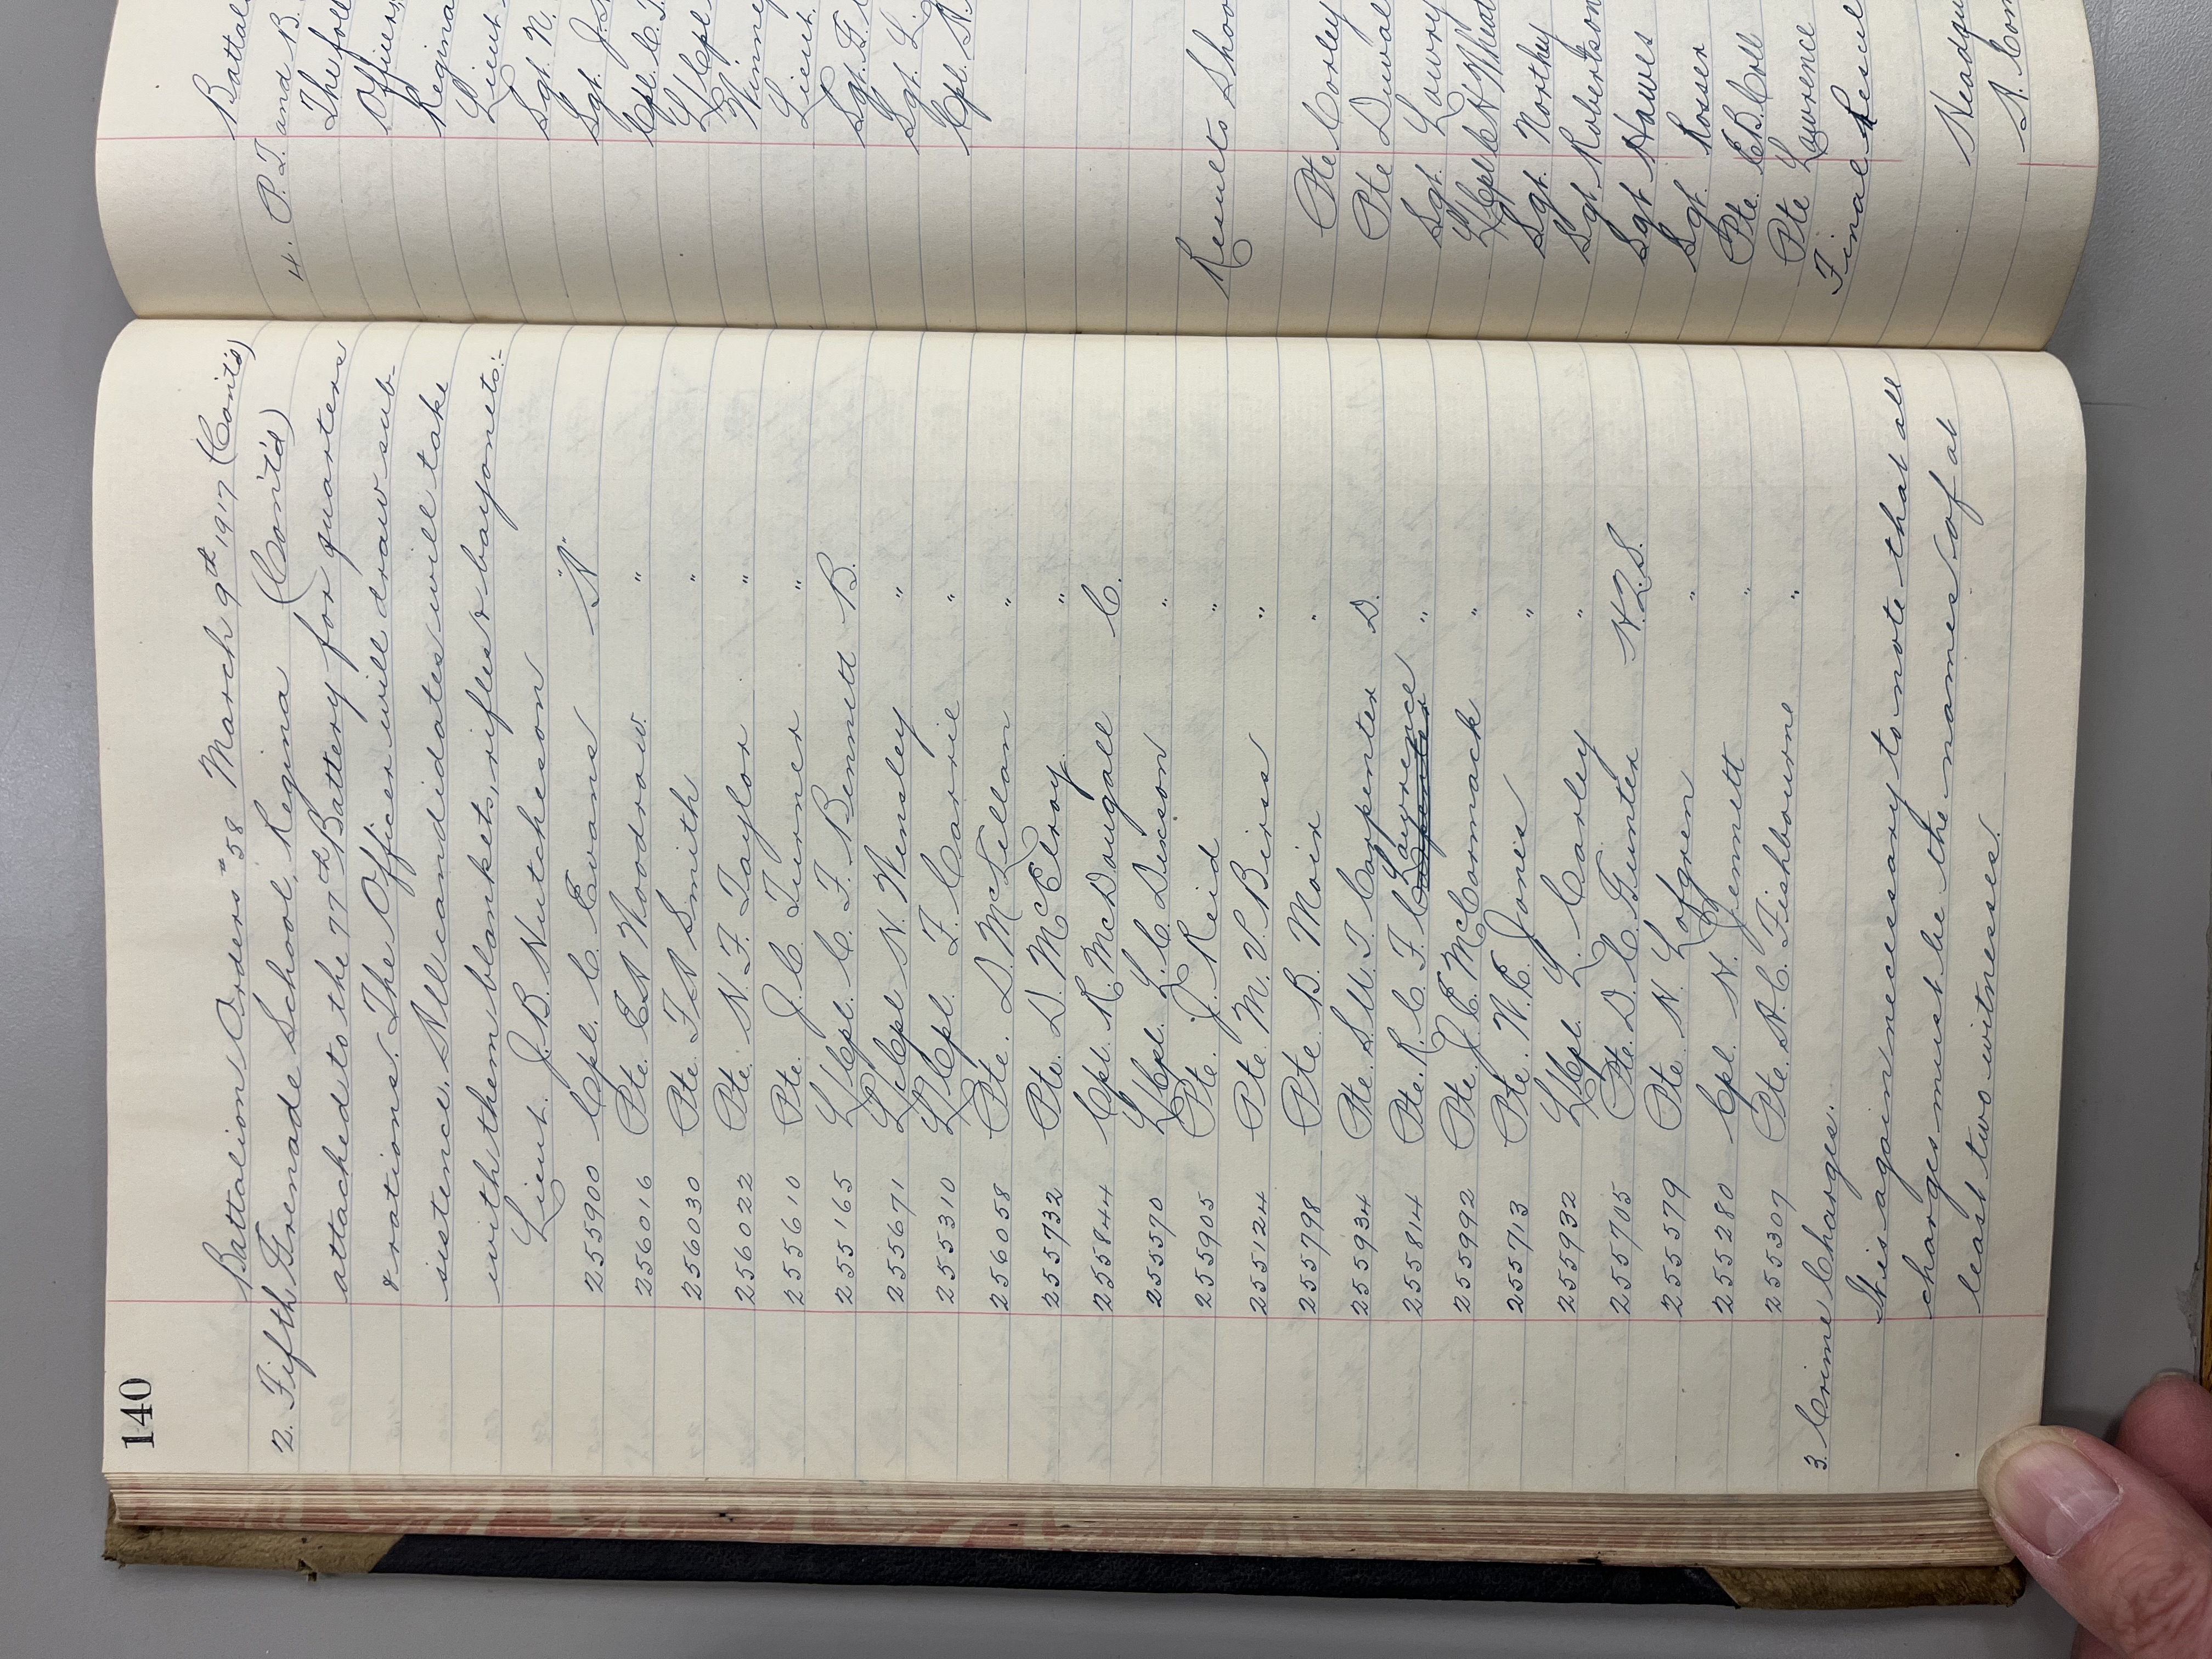 140
Battalion Orders #58 March 9th 1917 (Cont'd)
2. Fifth Grenade School, Regina (Cont'd)
attached to the 77th Battery for quarters
& rations. The Officer will draw sub-
sistence. All candidates will take
with them blankets, rifles & bayonets:-
Lieut. J. B. Hutcheson
255900 Cpl. C. Evans "A"
256016 Pte. E A Woodrow. "
256030 Pte. F A Smith "
256022 Pte. N. F. Taylor "
255610 Pte. J. C. Turner "
255165 L/Cpl. C. F. Bennett B.
255671 L/Cpl N. Wensley "
255310 L/Cpl. F. Carrie "
256058 Pte. D. McLellan "
255732 Pte. D. McElroy. "
255844 Cpl. R. McDougall C.
255570 L/Cpl. L. C. Dickson "
255905 Pte. J. Reid "
255124 Pte. M. V. Birss "
255798 Pte. B. Moir "
255934 Pte. S. W. T. Carpenter D.
255814 Pte. R. C. F. Carpenter Lawrence "
255992 Pte. J. E. McCormack "
255713 Pte. W. E. Jones "
255932 L/Cpl. L. Carley "
255705 Pte. D. C. Gunter H.Q.S.
255579 Pte. N. Lofgren "
255280 Cpl. H. Jennett "
255307 Pte. A. C. Fishbourne "
3. Crime Charges.
It is again necessary to note that all
charges must be the names of at
least two witnesses.
4. P.T. and B.
The foll
Officers
Regina
Lieut
Sgt. N.
Sgt. J.
Cpl. C. T.
L/Cpl
Winni
Lieut.
Sgt.
Sgt. L.
Cpl. A.
Results Shoo
Pte Corley
Pte Duval
Sgt. Lowry
L/Cpl A Wheat
Sgt. Northey
Sgt. Robertson
Sgt Hawes
Sgt. Rosser
Pte. E.B. Coll
Pte Lawrence
Final Resul
Headqu
A. Com